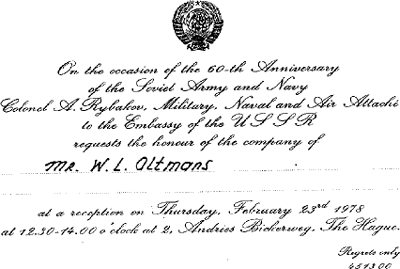 On the occasion of the 60-th Anniversary
of the Soviet Army and Navy
Colonel A. Rybakov, Military, Naval and Air Attaché
to the Embassy of the U S S R
requests the honour of the company of
Mr. W.L. Oltmans
at a reception on Thursday, February 23rd 1978
at 12.30-14.00 o'clock at 2, Andries Bickerweg, The Hague.
Regrets only
451300